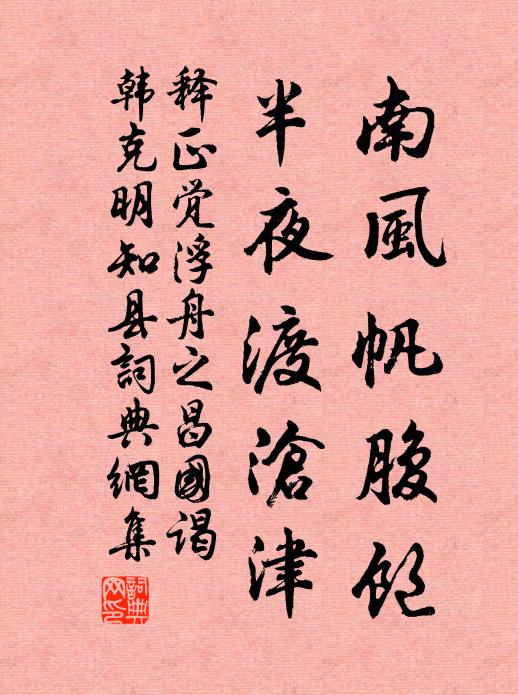 南風帆腹飽
半夜渡滄津
释正觉浮舟之昌國谒
韩克明知县詞典網集
詞典網印